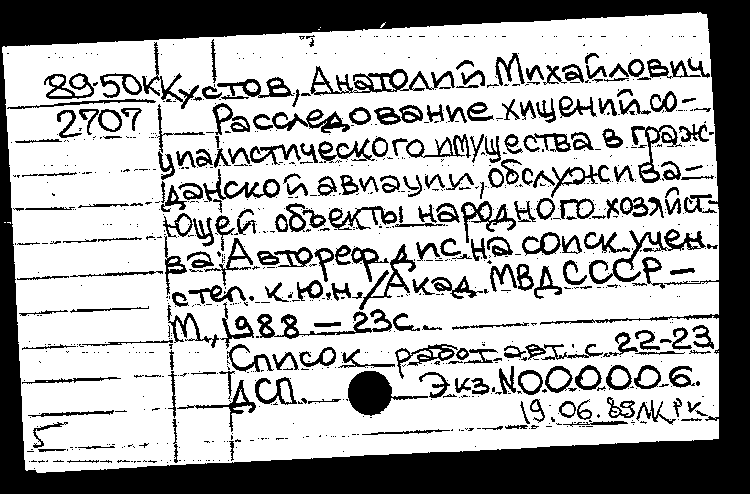 89-50К Кустов, Анатолий Михайлович.
2707 Расследование хищений со-
циалистического имущества в граж-
данской авиации, обслужива-
ющей объекты народного хозяйст-
ва: Автореф. дис. на соиск. учен.
степ. к.ю.н. / Акад. МВД СССР. —
М., 1988 — 23с.
Список работ авт.: с 22-23.
ДСП. Экз. №000006.
19.06.89
5